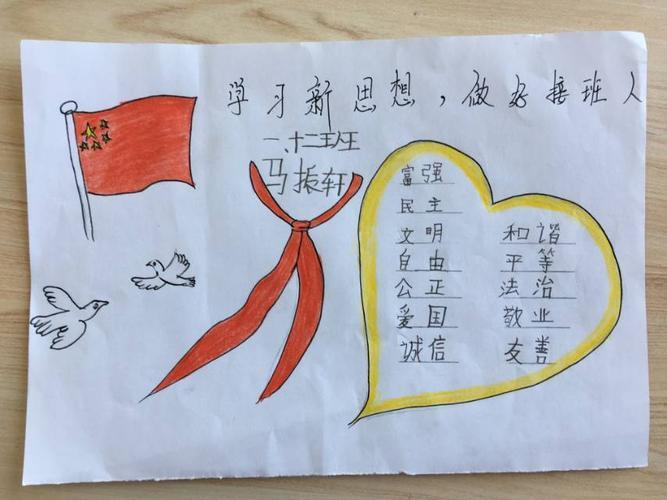 学习新思想，做好接班人
一、十二班
马振轩
富强
民主
文明 和谐
自由 平等
公正 法治
爱国 敬业
诚信 友善